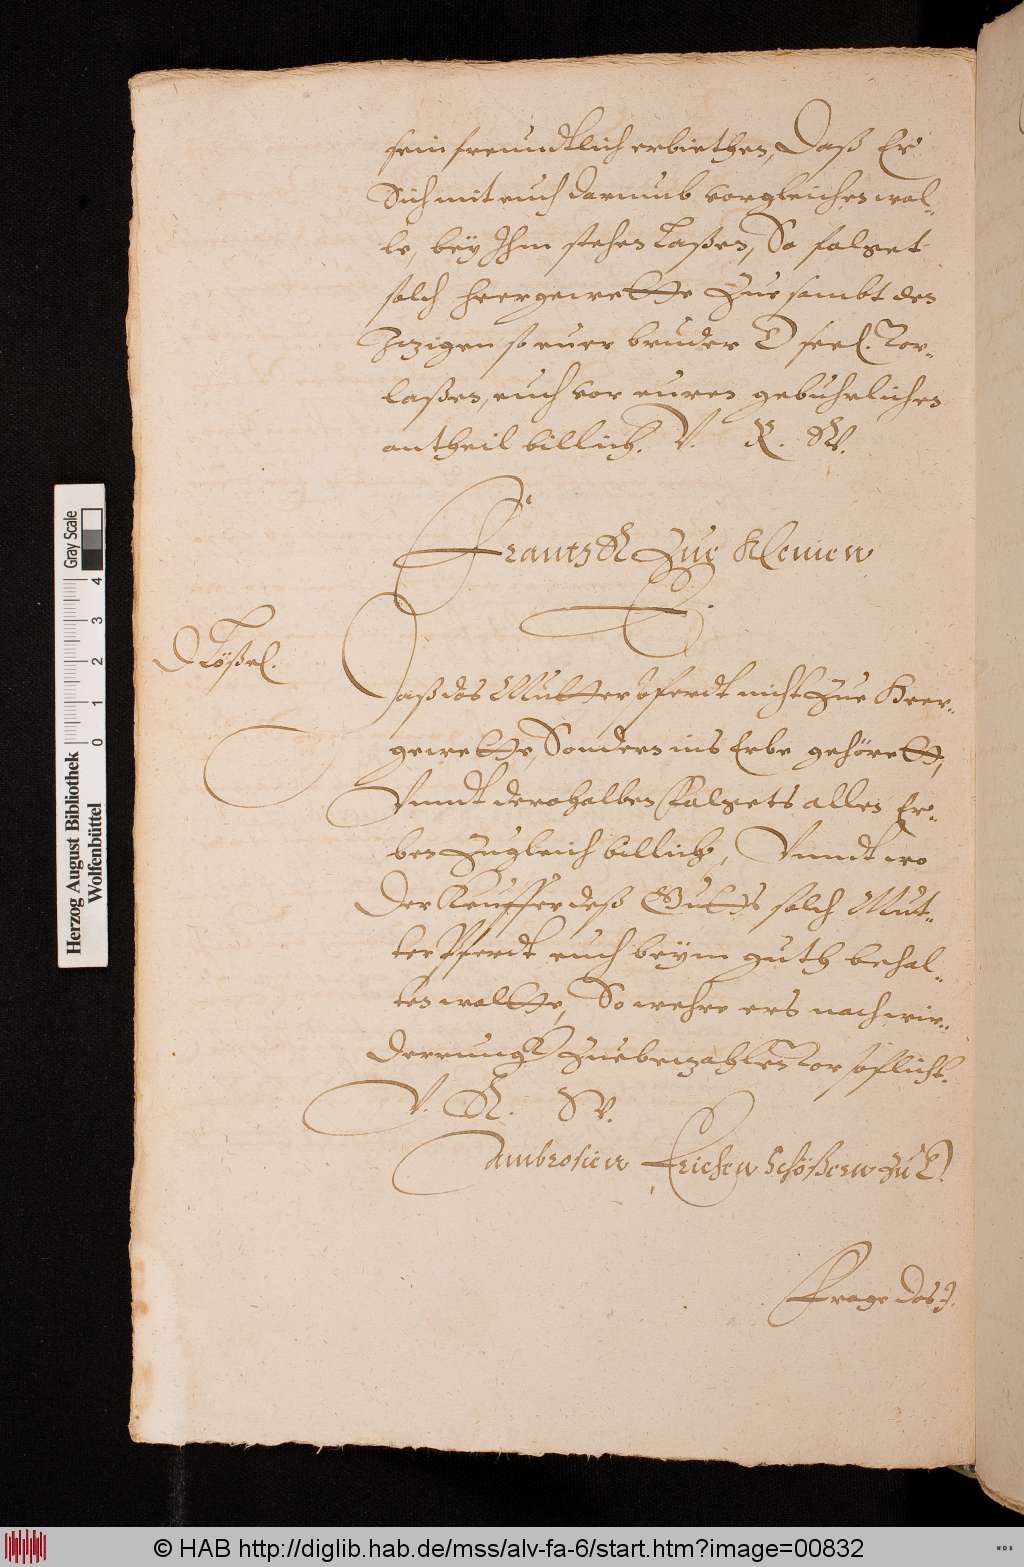 sein freundtlich erbiethen, Daß Er
Sich mit euch darumb vorgleichen wol-
le, bey Ihm stehen laßen, So folget
solch heergewette Zue sambt den
Jenigen so euer bruder seel. vor-
laßen, euch vor euren gebuhrlichen
antheil billich. V. R. W.
Frantz Zue
D Lößel.
Daß das Mutterpferdt nicht Zue Heer-
gewette, Sondern ins Erbe gehörett,
Vnndt derohalben folgets allen Er-
ben Zugleich billich, Vnndt wo
Der Keuffer deß Gutts solch Mut-
terpferdt auch beym guth behal-
ten wolte, So wehre ers nach wir-
derung Zuebezahlen vorpflicht.
V. R. W.
Ambrosien Erichen Schößern Zu D.
Frage das J.
Herzog August Bibliothek
Wolfenbüttel
0 1 2 3 4
Gray Scale
© HAB http://diglib.hab.de/mss/alv-fa-6/start.htm?image=00832
WDB